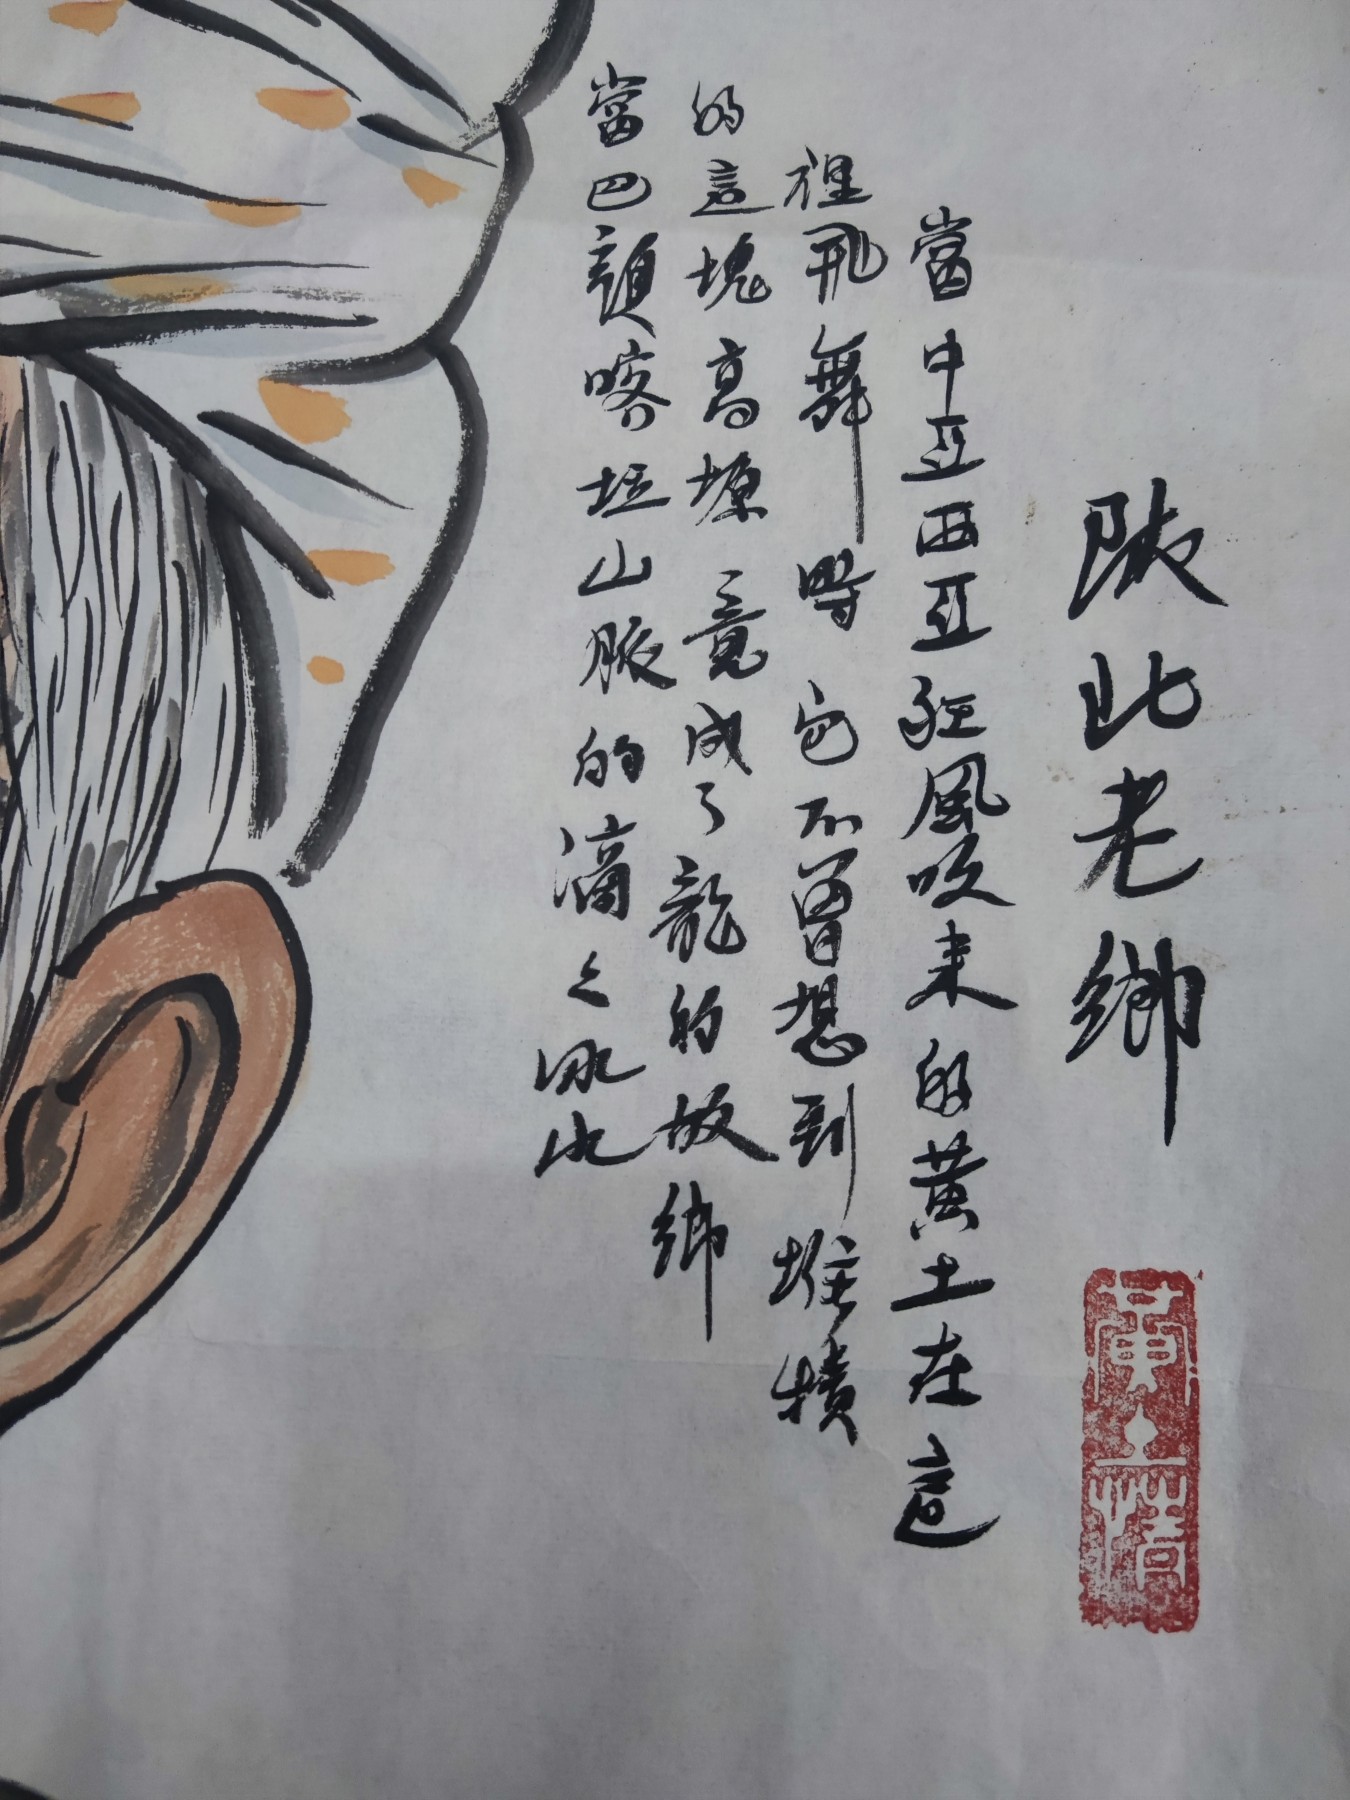 陝北老鄉
當中亞西亞狂風吹來的黃土在這
裡飛舞時它不曾想到堆積
的這塊高塬竟成了龍的故鄉
當巴顏喀拉山脈的滴之泉水
黃土情